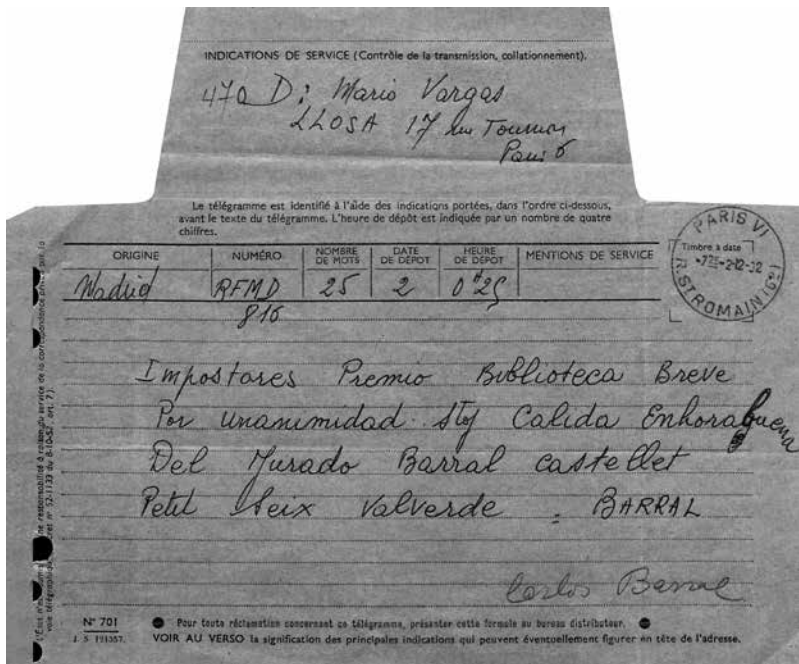 INDICATIONS DE SERVICE (Contrôle de la transmission, collationnement).
470 D: Mario Vargas
LLOSA 17 rue Tournon
Paris 6
Le télégramme est identifié à l'aide des indications portées, dans l'ordre ci-dessous,
avant le texte du télégramme. L'heure de dépôt est indiquée par un nombre de quatre
chiffres.
ORIGINE NUMÉRO NOMBRE DE MOTS DATE DE DÉPOT HEURE DE DÉPOT MENTIONS DE SERVICE
Madrid RFMD 25 2 0H25
816
PARIS VI
Timbre à date
R. ST ROMAIN (6e)
Impostares Premio Biblioteca Breve
Por unanimidad Stop Calida Enhorabuena
Del Jurado Barral Castellet
Petit Seix Valverde BARRAL
Carlos Barral
N° 701
Pour toute réclamation concernant ce télégramme, présenter cette formule au bureau distributeur.
VOIR AU VERSO la signification des principales indications qui peuvent éventuellement figurer en tête de l'adresse.